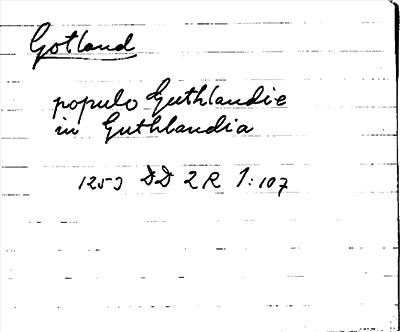 Gotland
populo Guthlandie
in Guthlandia
1253 DD 2R 1:107